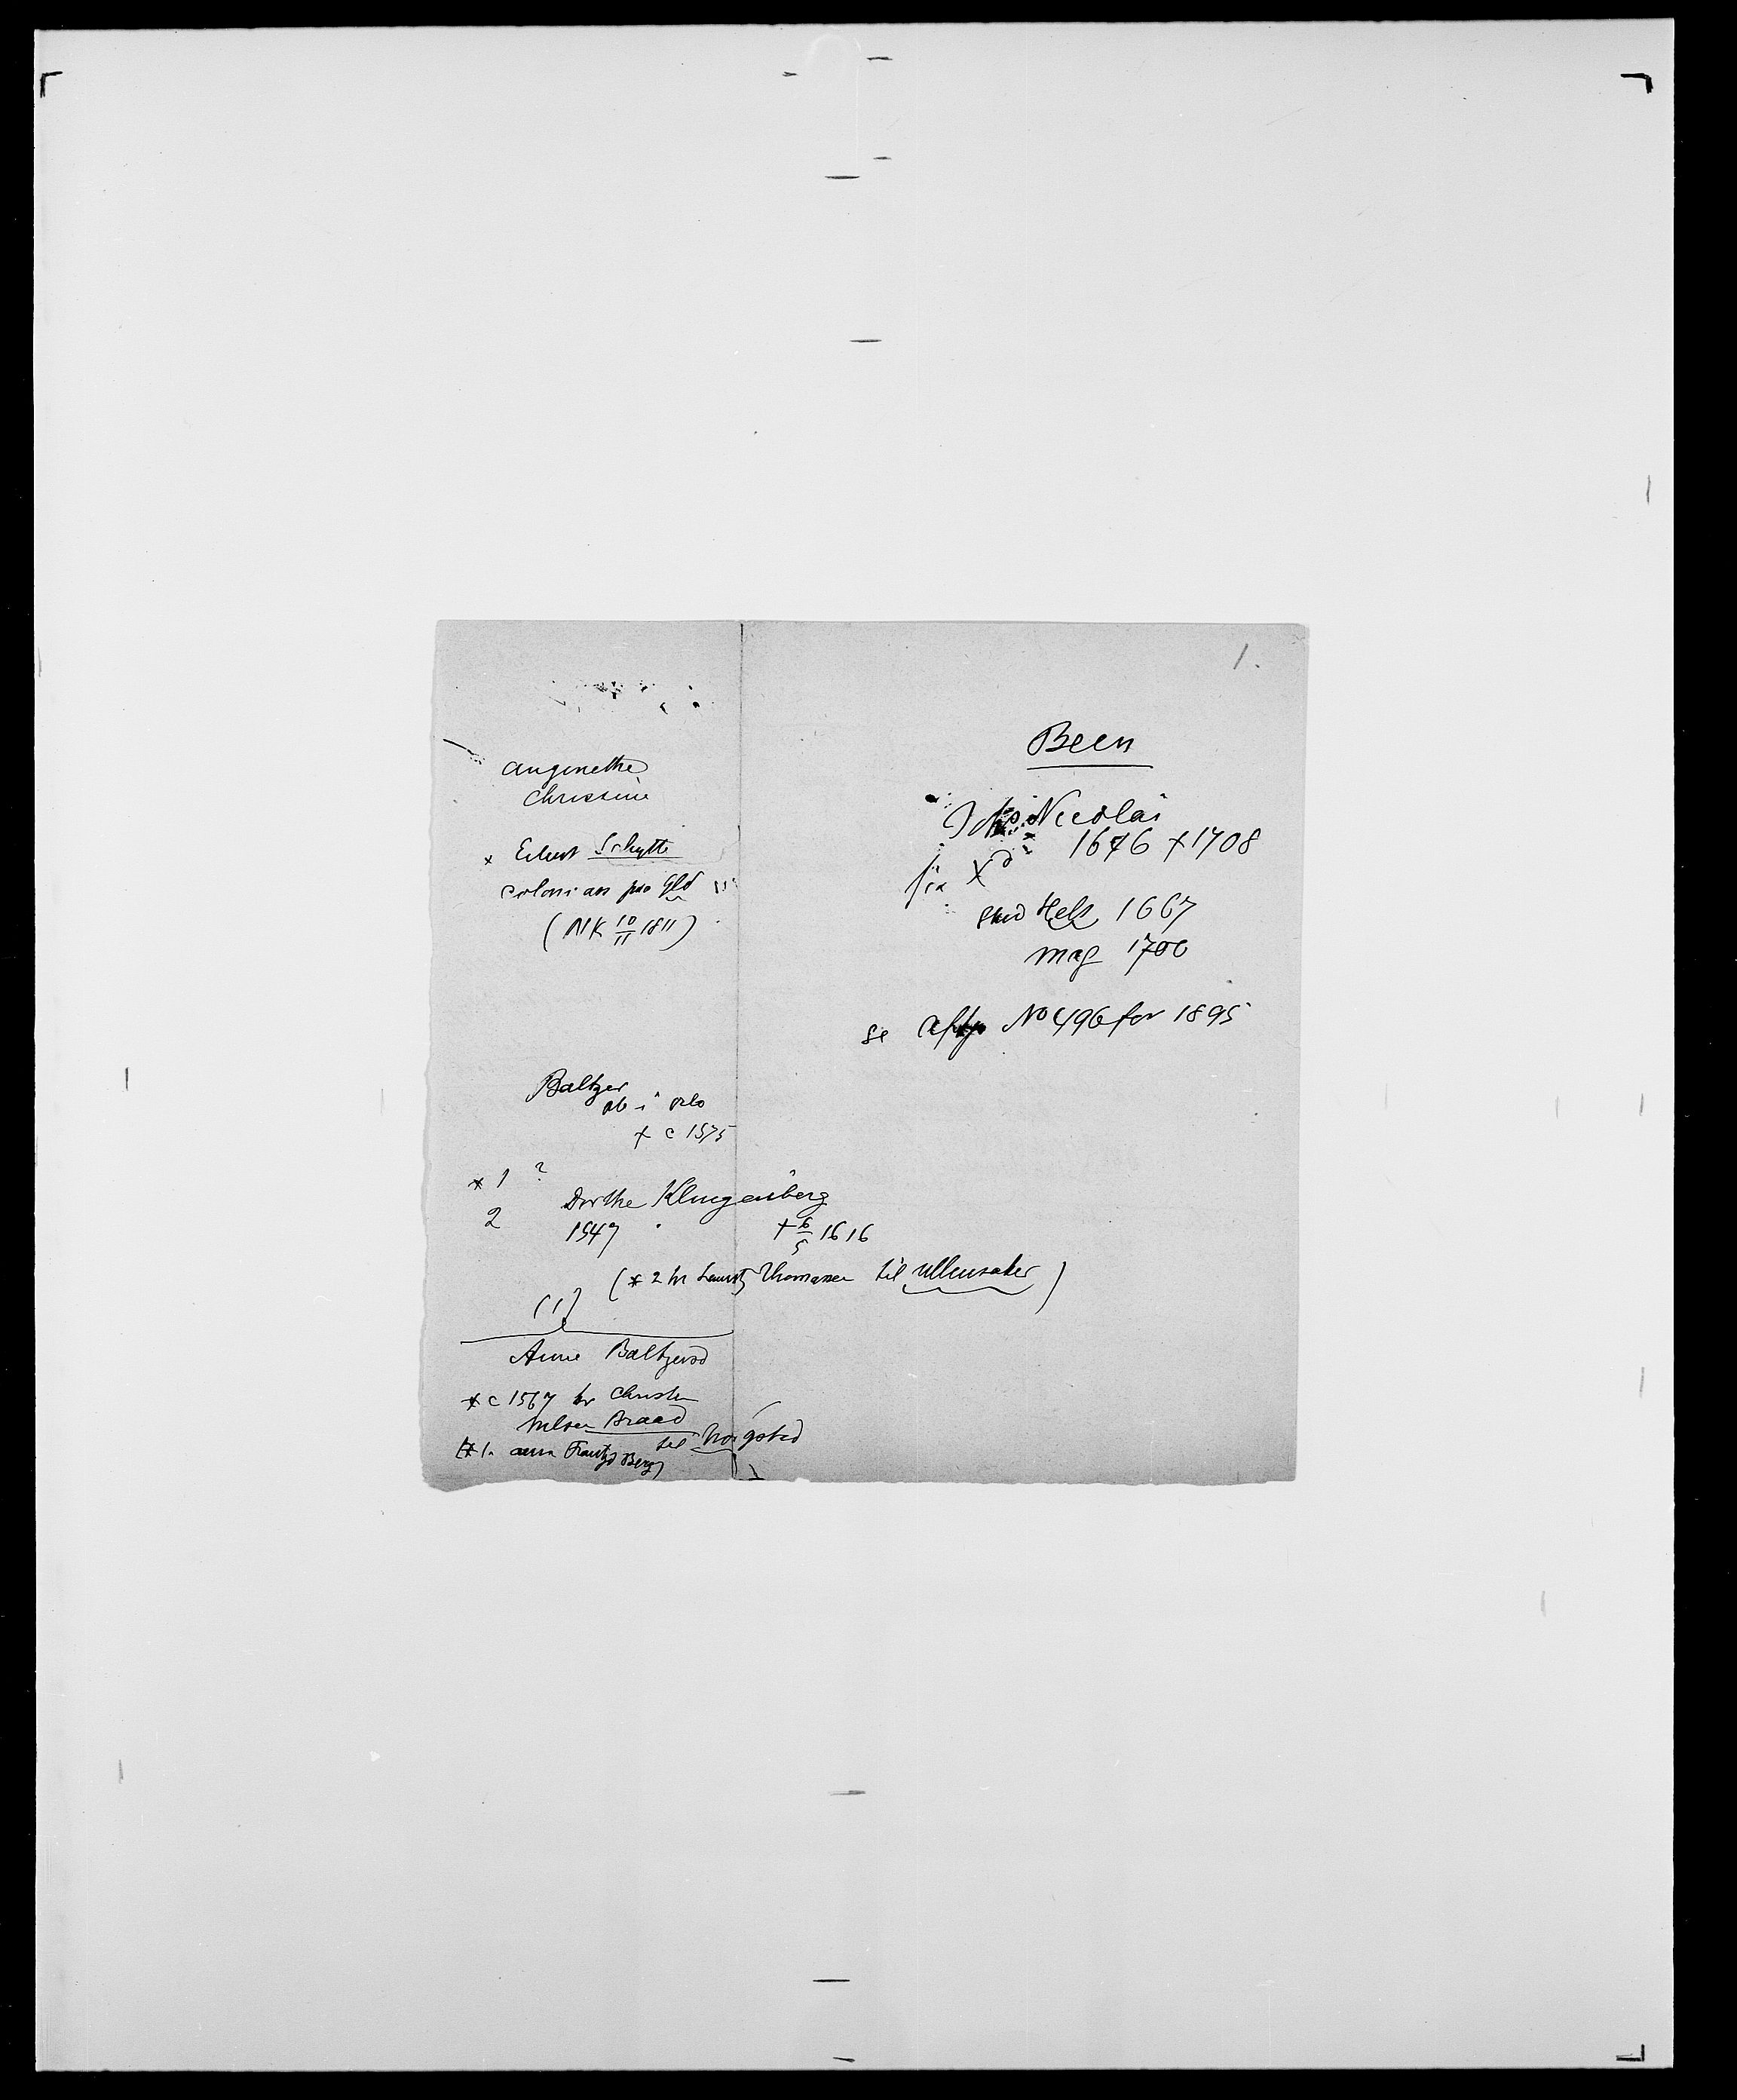 1.
Been
Nicolai
1676 + 1708
fra Xa
stud Hels 1667
mag 1700
se Aftp No 496 for 1895
Angenethe
Christine
* Eilert Schytte
colonian paa Gld
(NK 10/11 1811)
Baltzer
ob i Oslo
+ c 1575
* 1 ?
2 Dorthe Klingenberg
1547 + 6/5 1616
(* 2 hr Lauritz Thomassen til Ullensaker)
(1)
Anne Baltzersd
* c 1567 hr Christen
Nilsen Braad
til
(* 1. Anna Frantzd Berg)